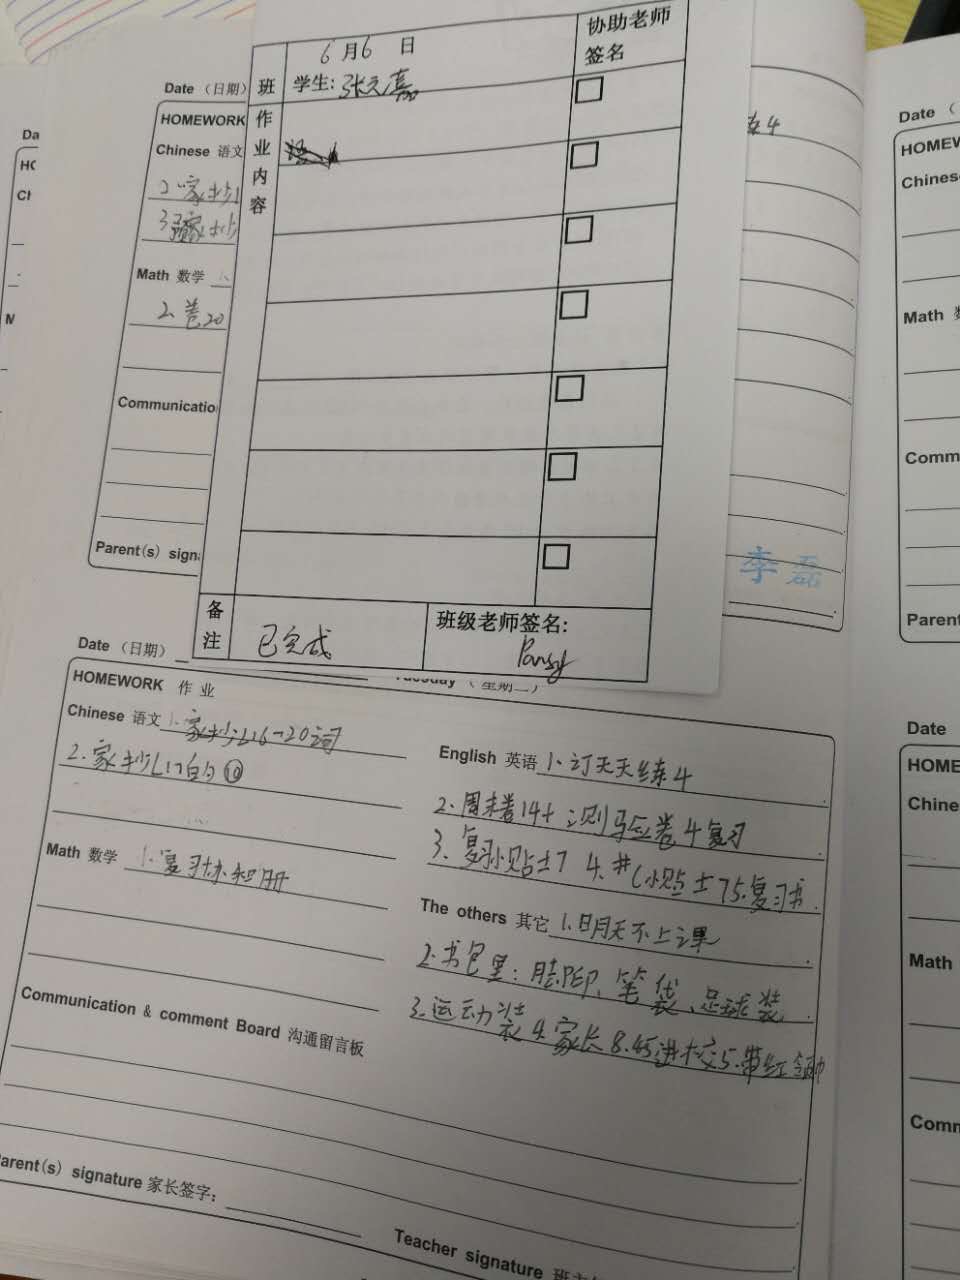 6月6 日
协助老师
签名
班
学生:
作
业
内
容
备
注
已完成
班级老师签名:
Pansy
Date （日期）
HOMEWORK
Chinese 语文
2.家抄
3.家抄
Math 数学
2.卷20
Communicatio
Parent(s) sign
练4
李磊
Date （日期）
Tuesday （星期二）
HOMEWORK 作业
Chinese 语文 1.家抄L16-20词
2.家抄L17白的⑩
Math 数学 1.复习
Communication & comment Board 沟通留言板
arent(s) signature 家长签字:
English 英语 1.订天天练4
2.周末卷14+测马应卷4复习
3.复习小贴士7 4.#(小贴士7 5.复习书.
The others 其它 1.明天不上课
2.书包里:水、笔袋、足球装
3.运动装 4.家长8.45进校 5.带红领巾
Teacher signature
Da
HC
Ch
M
Date （
HOMEW
Chines
Math
Comm
Parent
Date
HOME
Chine
Math
Comm